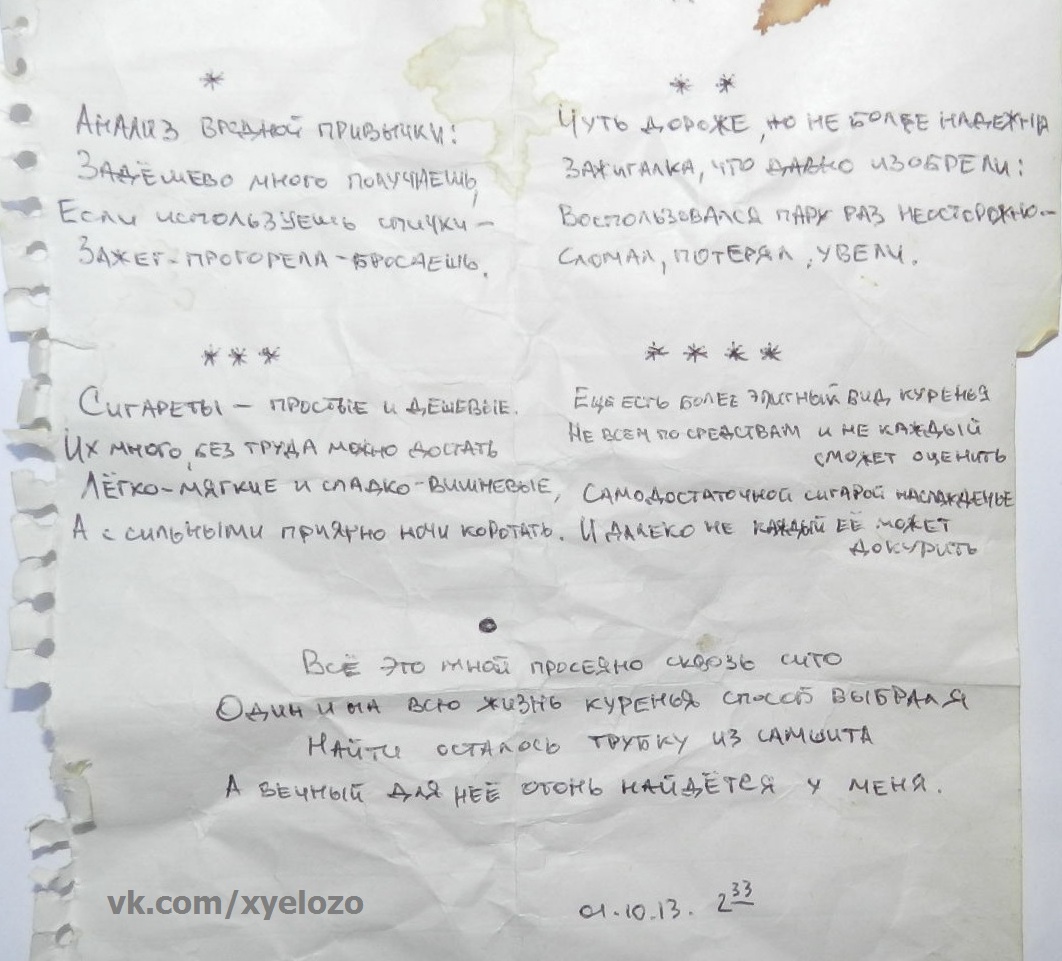 *
Анализ вредной привычки:
Задёшево много получаешь,
Если используешь спички –
Зажег-прогорела-бросаешь.
* *
Чуть дороже, но не более надежна
Зажигалка, что давно изобрели:
Воспользовался пару раз неосторожно –
Сломал, потерял, увели.
* * *
Сигареты – простые и дешевые.
Их много, без труда можно достать
Лёгко-мягкие и сладко-вишневые,
А с сильными приятно ночи коротать.
* * * *
Еще есть более элитный вид куренья
Не всем по средствам и не каждый
сможет оценить
Самодостаточной сигарой наслажденье
И далеко не каждый её может
докурить
•
Всё это мной просеяно сквозь сито
Один и на всю жизнь куренья способ выбрал я
Найти осталось трубку из самшита
А вечный для неё огонь найдётся у меня.
01.10.13. 2 33
vk.com/xyelozo